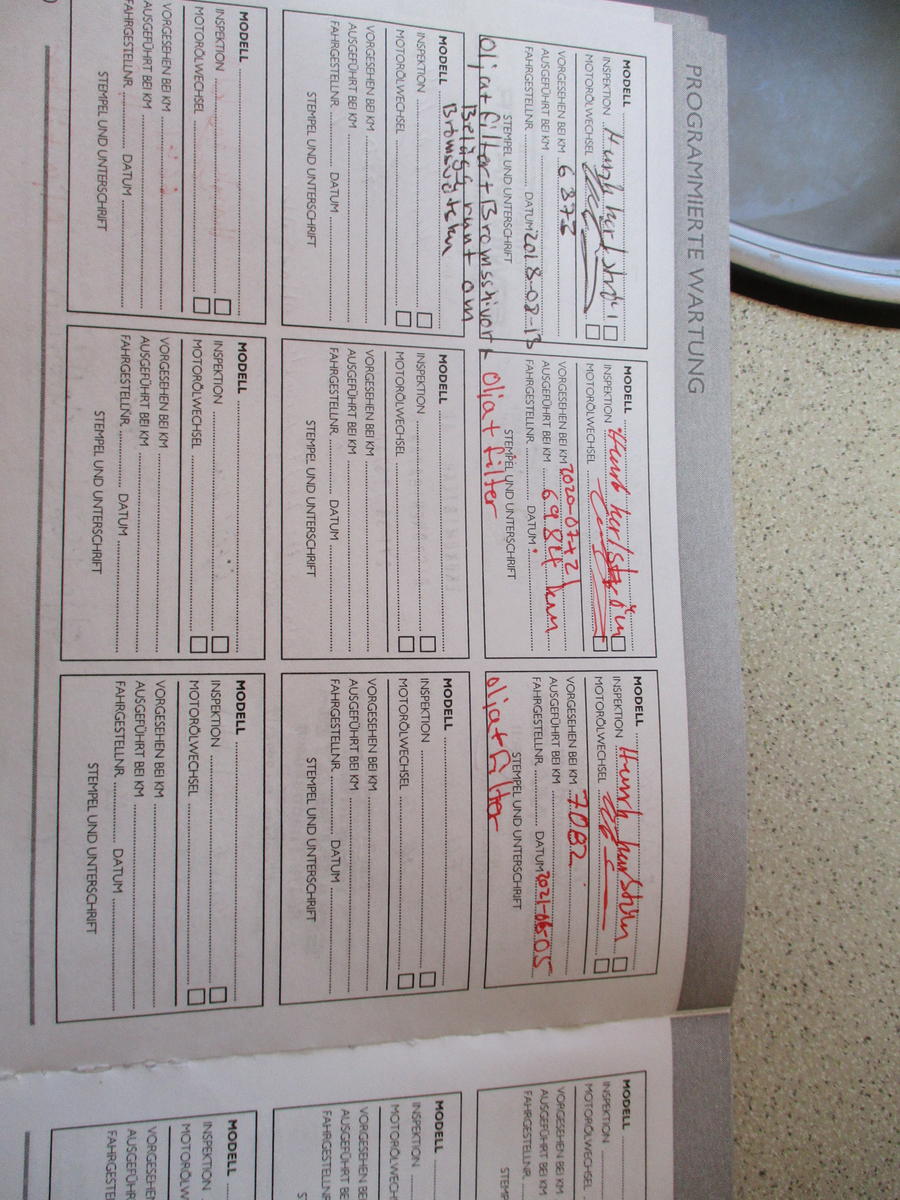 PROGRAMMIERTE WARTUNG
MODELL
INSPEKTION
MOTORÖLWECHSEL
VORGESEHEN BEI KM 6872
AUSGEFÜHRT BEI KM
FAHRGESTELLNR. DATUM 2018-08-13
STEMPEL UND UNTERSCHRIFT
Olja+filter+Bromsskivor+
Belägg runt om
Bromsvätska
MODELL
INSPEKTION
MOTORÖLWECHSEL
VORGESEHEN BEI KM 2020-07-21
AUSGEFÜHRT BEI KM 6984 km
FAHRGESTELLNR. DATUM
STEMPEL UND UNTERSCHRIFT
olja+filter
MODELL
INSPEKTION
MOTORÖLWECHSEL
VORGESEHEN BEI KM 7082
AUSGEFÜHRT BEI KM
FAHRGESTELLNR. DATUM 2021-06-05
STEMPEL UND UNTERSCHRIFT
olja+filter
MODELL
INSPEKTION
MOTORÖLWECHSEL
VORGESEHEN BEI KM
AUSGEFÜHRT BEI KM
FAHRGESTELLNR.
STEMPEL UND
MODELL
INSPEKTION
MOTORÖLWECHSEL
VORGESEHEN BEI KM
AUSGEFÜHRT BEI KM
FAHRGESTELLNR. DATUM
STEMPEL UND UNTERSCHRIFT
MODELL
INSPEKTION
MOTORÖLWECHSEL
VORGESEHEN BEI KM
AUSGEFÜHRT BEI KM
FAHRGESTELLNR. DATUM
STEMPEL UND UNTERSCHRIFT
MODELL
INSPEKTION
MOTORÖLWECHSEL
VORGESEHEN BEI KM
AUSGEFÜHRT BEI KM
FAHRGESTELLNR. DATUM
STEMPEL UND UNTERSCHRIFT
MODELL
INSPEKTION
MOTORÖLWECHSEL
VORGESEHEN BEI KM
AUSGEFÜHRT BEI KM
FAHRGESTELLNR.
STEMPEL UND
MODELL
INSPEKTION
MOTORÖLWECHSEL
VORGESEHEN BEI KM
AUSGEFÜHRT BEI KM
FAHRGESTELLNR. DATUM
STEMPEL UND UNTERSCHRIFT
MODELL
INSPEKTION
MOTORÖLWECHSEL
VORGESEHEN BEI KM
AUSGEFÜHRT BEI KM
FAHRGESTELLNR. DATUM
STEMPEL UND UNTERSCHRIFT
MODELL
INSPEKTION
MOTORÖLWECHSEL
VORGESEHEN BEI KM
AUSGEFÜHRT BEI KM
FAHRGESTELLNR. DATUM
STEMPEL UND UNTERSCHRIFT
MODELL
INSPEKTION
MOTORÖLW
VORGESEHEN
AUSGEFÜHR
FAHRGESTE